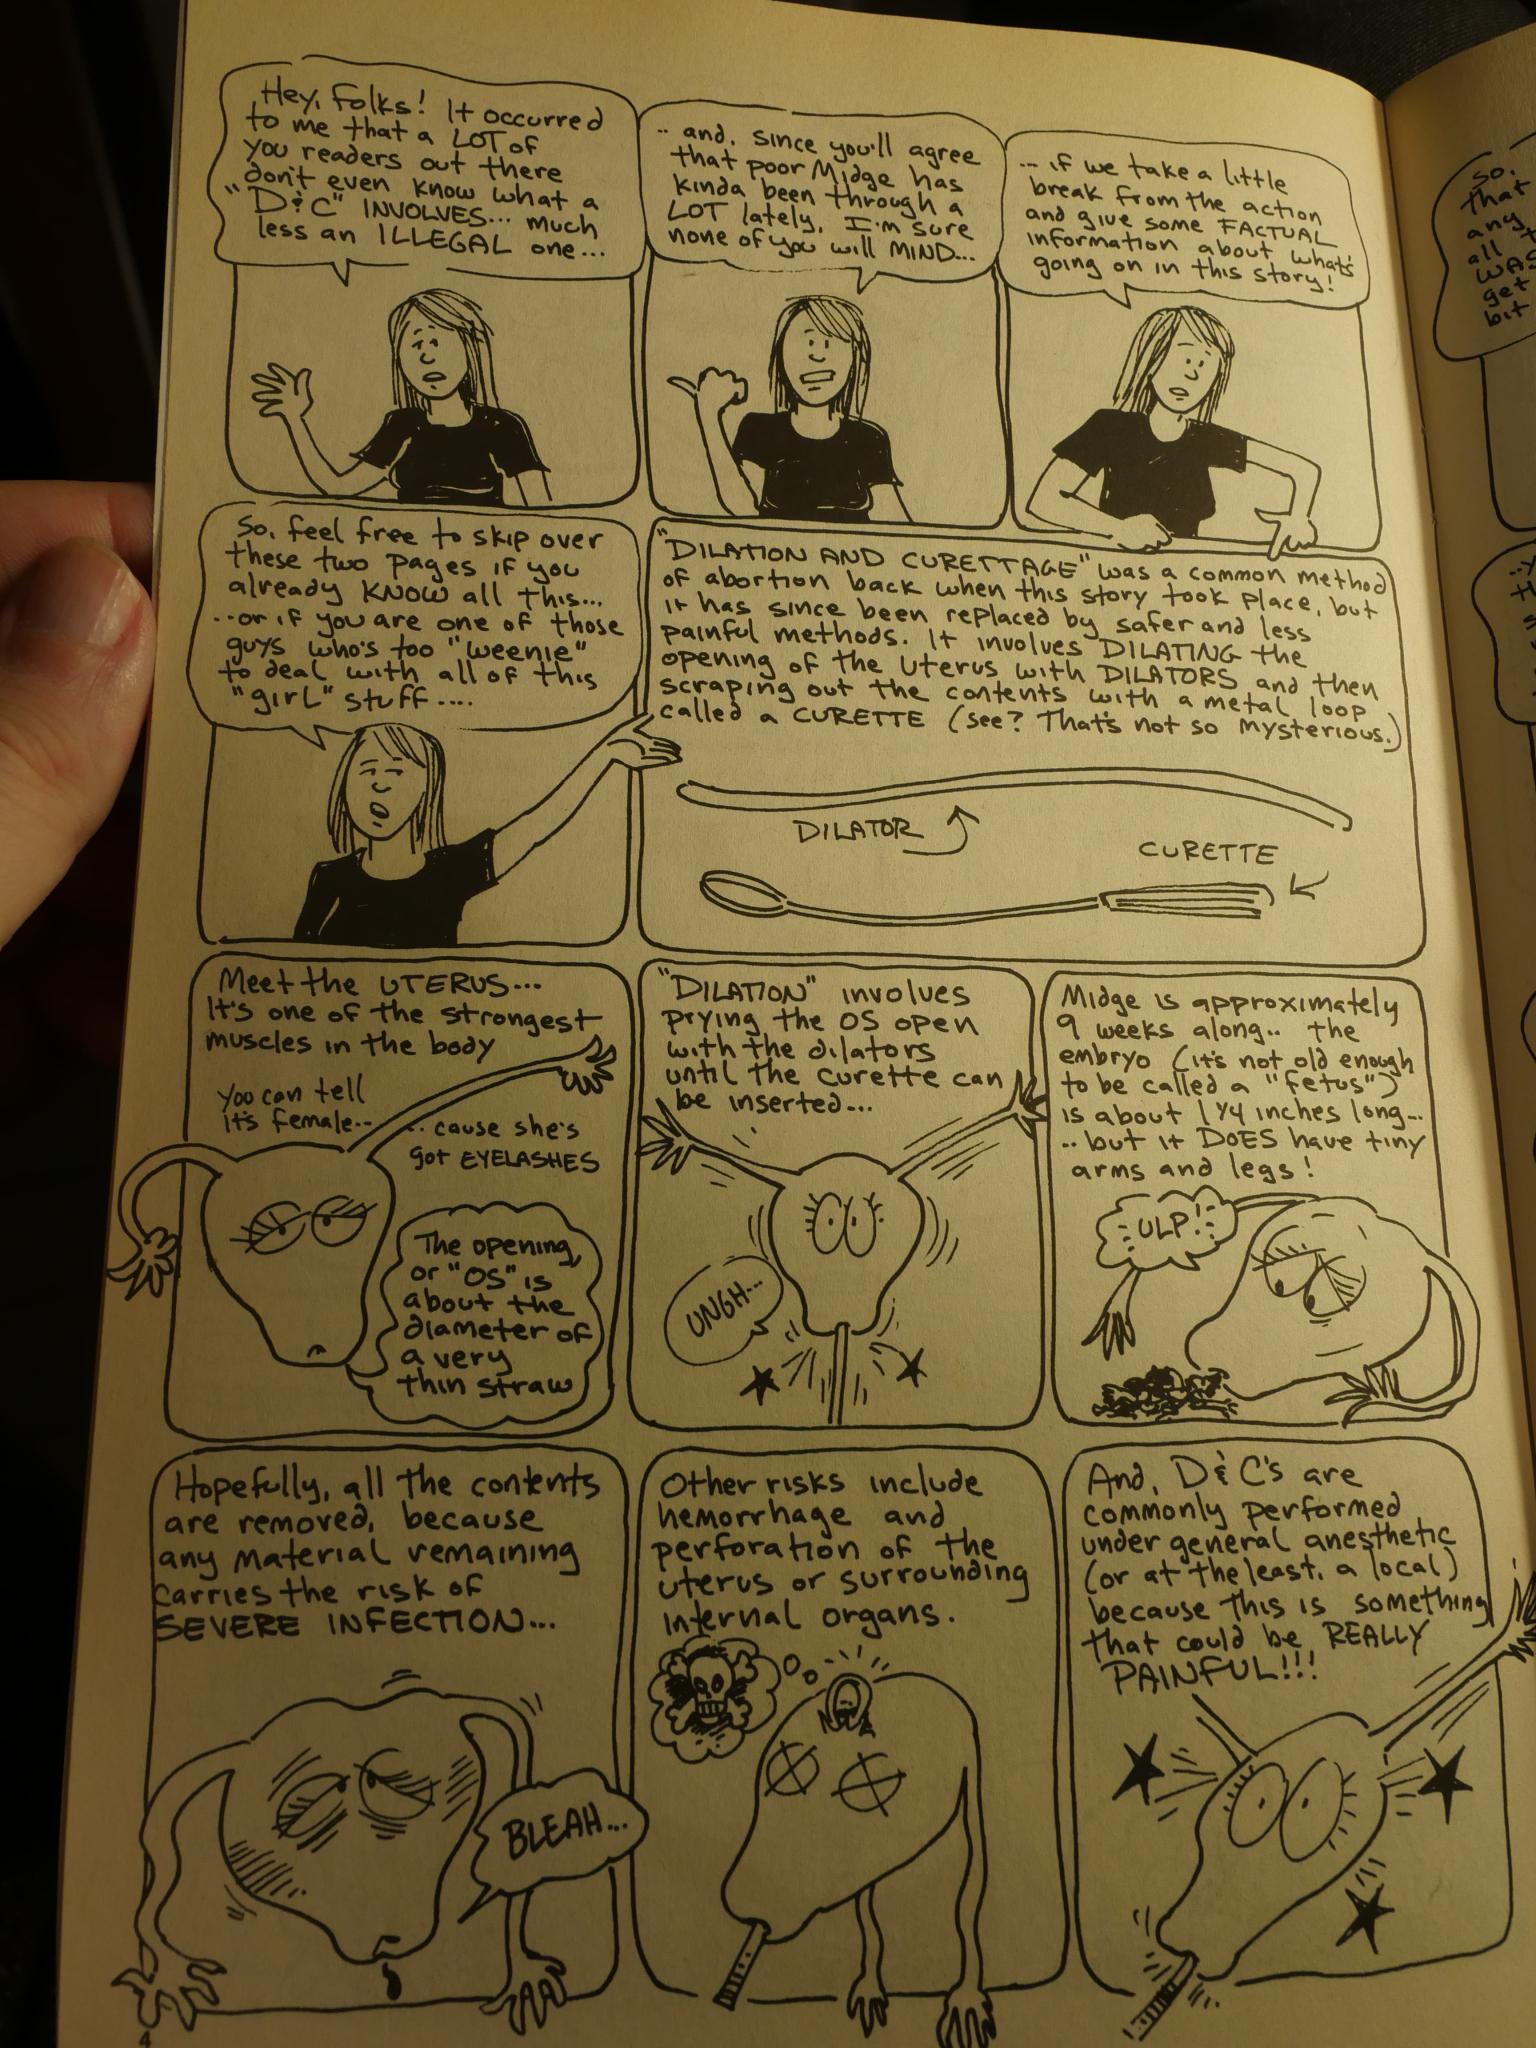 Hey, folks! It occurred
to me that a LOT of
you readers out there
don't even know what a
"D&C" INVOLVES... much
less an ILLEGAL one...
.. and, since you'll agree
that poor Midge has
kinda been through a
LOT lately, I'm sure
none of you will MIND...
... if we take a little
break from the action
and give some FACTUAL
information about what's
going on in this story!
So, feel free to skip over
these two pages if you
already KNOW all this...
..or if you are one of those
guys who's too "weenie"
to deal with all of this
"girl" stuff....
"DILATION AND CURETTAGE" was a common method
of abortion back when this story took place, but
it has since been replaced by safer and less
painful methods. It involves DILATING the
opening of the uterus with DILATORS and then
scraping out the contents with a metal loop
called a CURETTE (see? That's not so mysterious.)
DILATOR
CURETTE
Meet the UTERUS...
It's one of the strongest
muscles in the body
you can tell
it's female..
.. cause she's
got EYELASHES
The opening,
or "OS" is
about the
diameter of
a very
thin straw
"DILATION" involves
prying the OS open
with the dilators
until the curette can
be inserted...
UNGH...
Midge is approximately
9 weeks along.. the
embryo (it's not old enough
to be called a "fetus")
is about 1 1/4 inches long...
.. but it DOES have tiny
arms and legs!
ULP!
Hopefully, all the contents
are removed, because
any material remaining
carries the risk of
SEVERE INFECTION...
BLEAH...
Other risks include
hemorrhage and
perforation of the
uterus or surrounding
internal organs.
And, D&C's are
commonly performed
under general anesthetic
(or at the least, a local)
because this is something
that could be REALLY
PAINFUL!!!
4
So,
that
any
all
WAS
get
bit